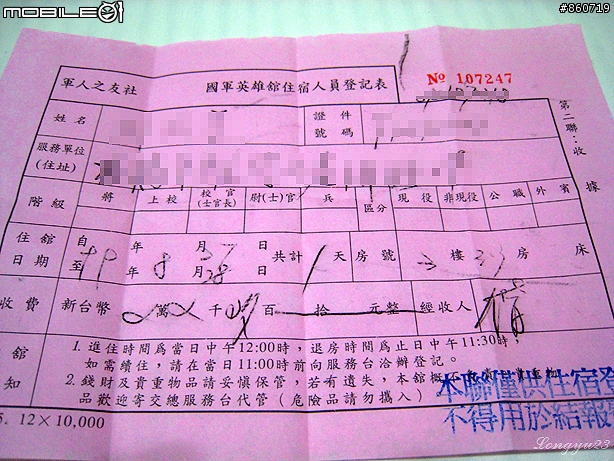 mobile01
#860719
軍人之友社 國軍英雄館住宿人員登記表
№ 107247
姓名 證件號碼
服務單位(住址)
階級 將 上校 校官(士官長) 尉(士)官 兵 區分 現役 非現役 公職 外賓
住舘日期 自 年 月 日 共計 1 天 房號 樓 房 床
至 99 年 8 月 28 日
收費 新台幣 萬 千 百 拾 元整 經收人
舘 1. 進住時間為當日中午12:00時，退房時間為止日中午11:30時，
如需續住，請在當日11:00時前向服務台洽辦登記。
知 2. 錢財及貴重物品請妥慎保管，若有遺失，本舘概不
品歡迎寄交總服務台代管（危險品請勿攜入）
第二聯：收據
5. 12×10,000
本聯僅供住宿
不得用於結報
Longyu23